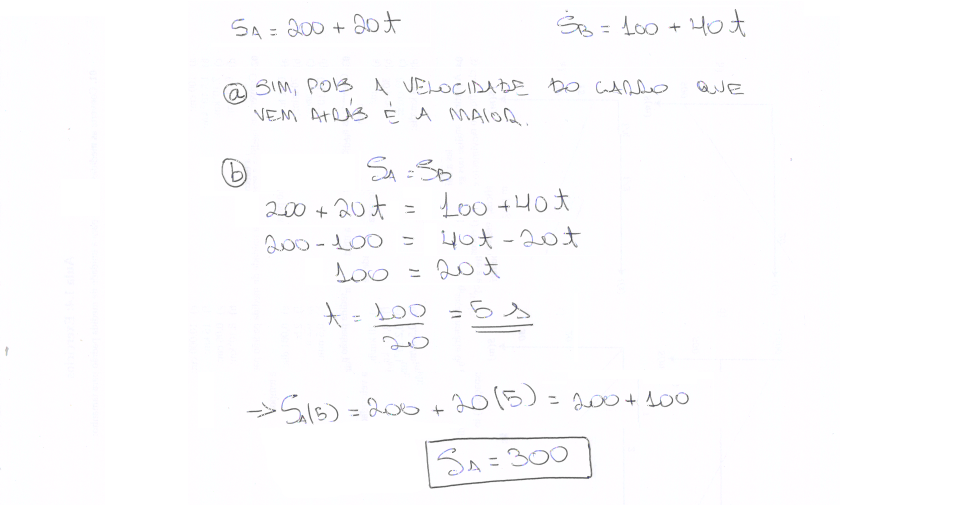 SA = 200 + 20t SB = 100 + 40t
(a) SIM, POIS A VELOCIDADE DO CARRO QUE
VEM ATRÁS É A MAIOR.
(b) SA = SB
200 + 20t = 100 + 40t
200 - 100 = 40t - 20t
100 = 20t
t = 100/20 = 5 s
→ SA(5) = 200 + 20(5) = 200 + 100
SA = 300